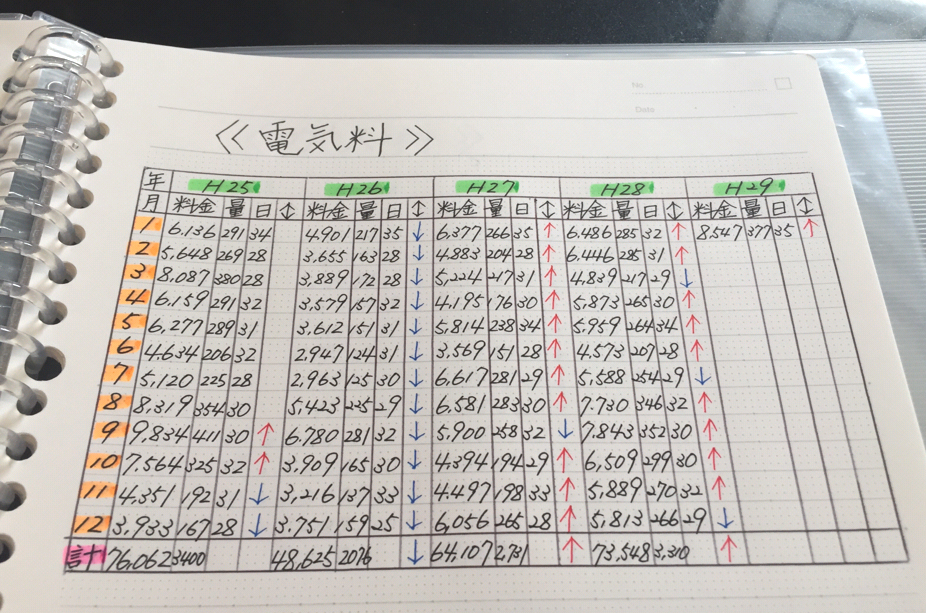 No.
Date
《電気料》
年 H25 H26 H27 H28 H29
月 料金 量 日 ↕ 料金 量 日 ↕ 料金 量 日 ↕ 料金 量 日 ↕ 料金 量 日 ↕
1 6,136 291 34 4,901 217 35 ↓ 6,377 266 35 ↑ 6,486 285 32 ↑ 8,547 377 35 ↑
2 5,648 269 28 3,655 163 28 ↓ 4,883 204 28 ↑ 6,446 285 31 ↑
3 8,087 380 28 3,889 172 28 ↓ 5,224 217 31 ↑ 4,839 217 29 ↓
4 6,159 291 32 3,579 157 32 ↓ 4,195 176 30 ↑ 5,873 265 30 ↑
5 6,277 289 31 3,612 151 31 ↓ 5,814 238 34 ↑ 5,959 264 34 ↑
6 4,634 206 32 2,947 124 31 ↓ 3,569 151 28 ↑ 4,573 207 28 ↑
7 5,120 225 28 2,963 125 30 ↓ 6,617 281 29 ↑ 5,588 254 29 ↓
8 8,319 354 30 5,423 225 29 ↓ 6,581 283 30 ↑ 7,730 346 32 ↑
9 9,834 411 30 ↑ 6,780 281 32 ↓ 5,900 258 32 ↓ 7,843 352 30 ↑
10 7,564 325 32 ↑ 3,909 165 30 ↓ 4,394 194 29 ↑ 6,509 299 30 ↑
11 4,351 192 31 ↓ 3,216 137 33 ↓ 4,497 198 33 ↑ 5,889 270 32 ↑
12 3,933 167 28 ↓ 3,751 159 25 ↓ 6,056 265 28 ↑ 5,813 266 29 ↓
計 76,062 3400 48,625 2076 ↓ 64,107 2,731 ↑ 73,548 3,310 ↑